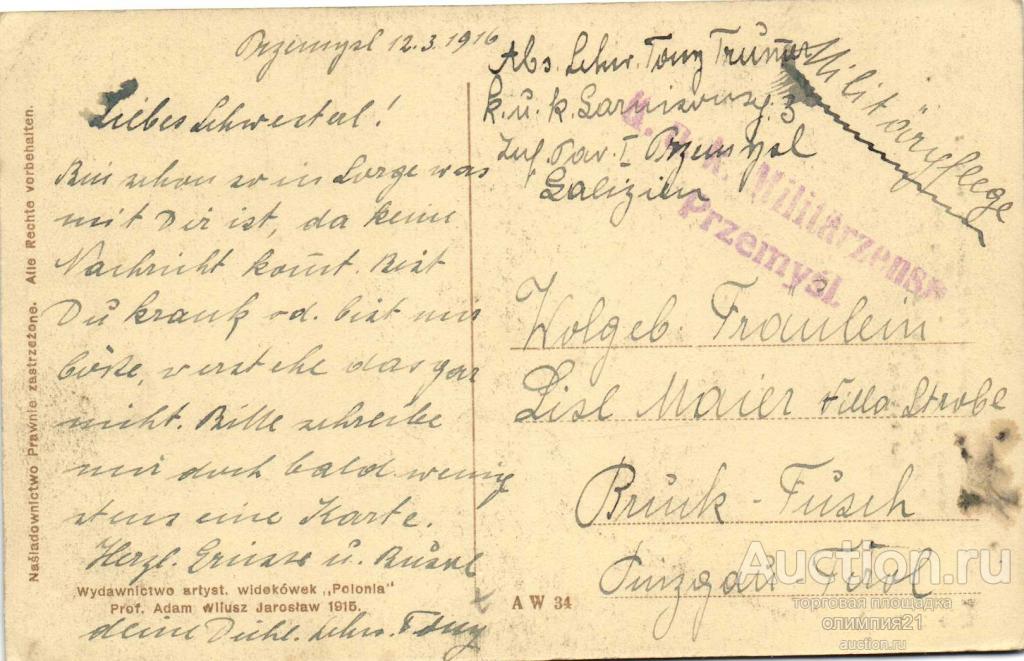 Przemysl 12.3.1916
Liebes Schwesterl!
Bin schon so in Sorge was
mit Dir ist, da keine
Nachricht kom̄t. Bist
Du krank od. bist mir
böse, verstehe das gar
nicht. Bitte schreibe
mir doch bald wenig
stens eine Karte.
Herzl. Grüsse u. Bussl
deine Schw. Tony
Abs. Schw. Tony
k. u. k. 3
Inf. Pav. I Przemysl
Galizien
Militärpflege
K. u. k. Militärzensur
Przemyśl
Wolgeb. Fräulein
Lise Maier Villa Strobe
Bruck-Fusch
Pinzgau-Tirol
Naśladownictwo Prawnie zastrzeżone. Alle Rechte vorbehalten.
Wydawnictwo artyst. widokówek „Polonia"
Prof. Adam Wilusz Jarosław 1915.
A W 34
Auction.ru
торговая площадка
олимпия21
auction.ru